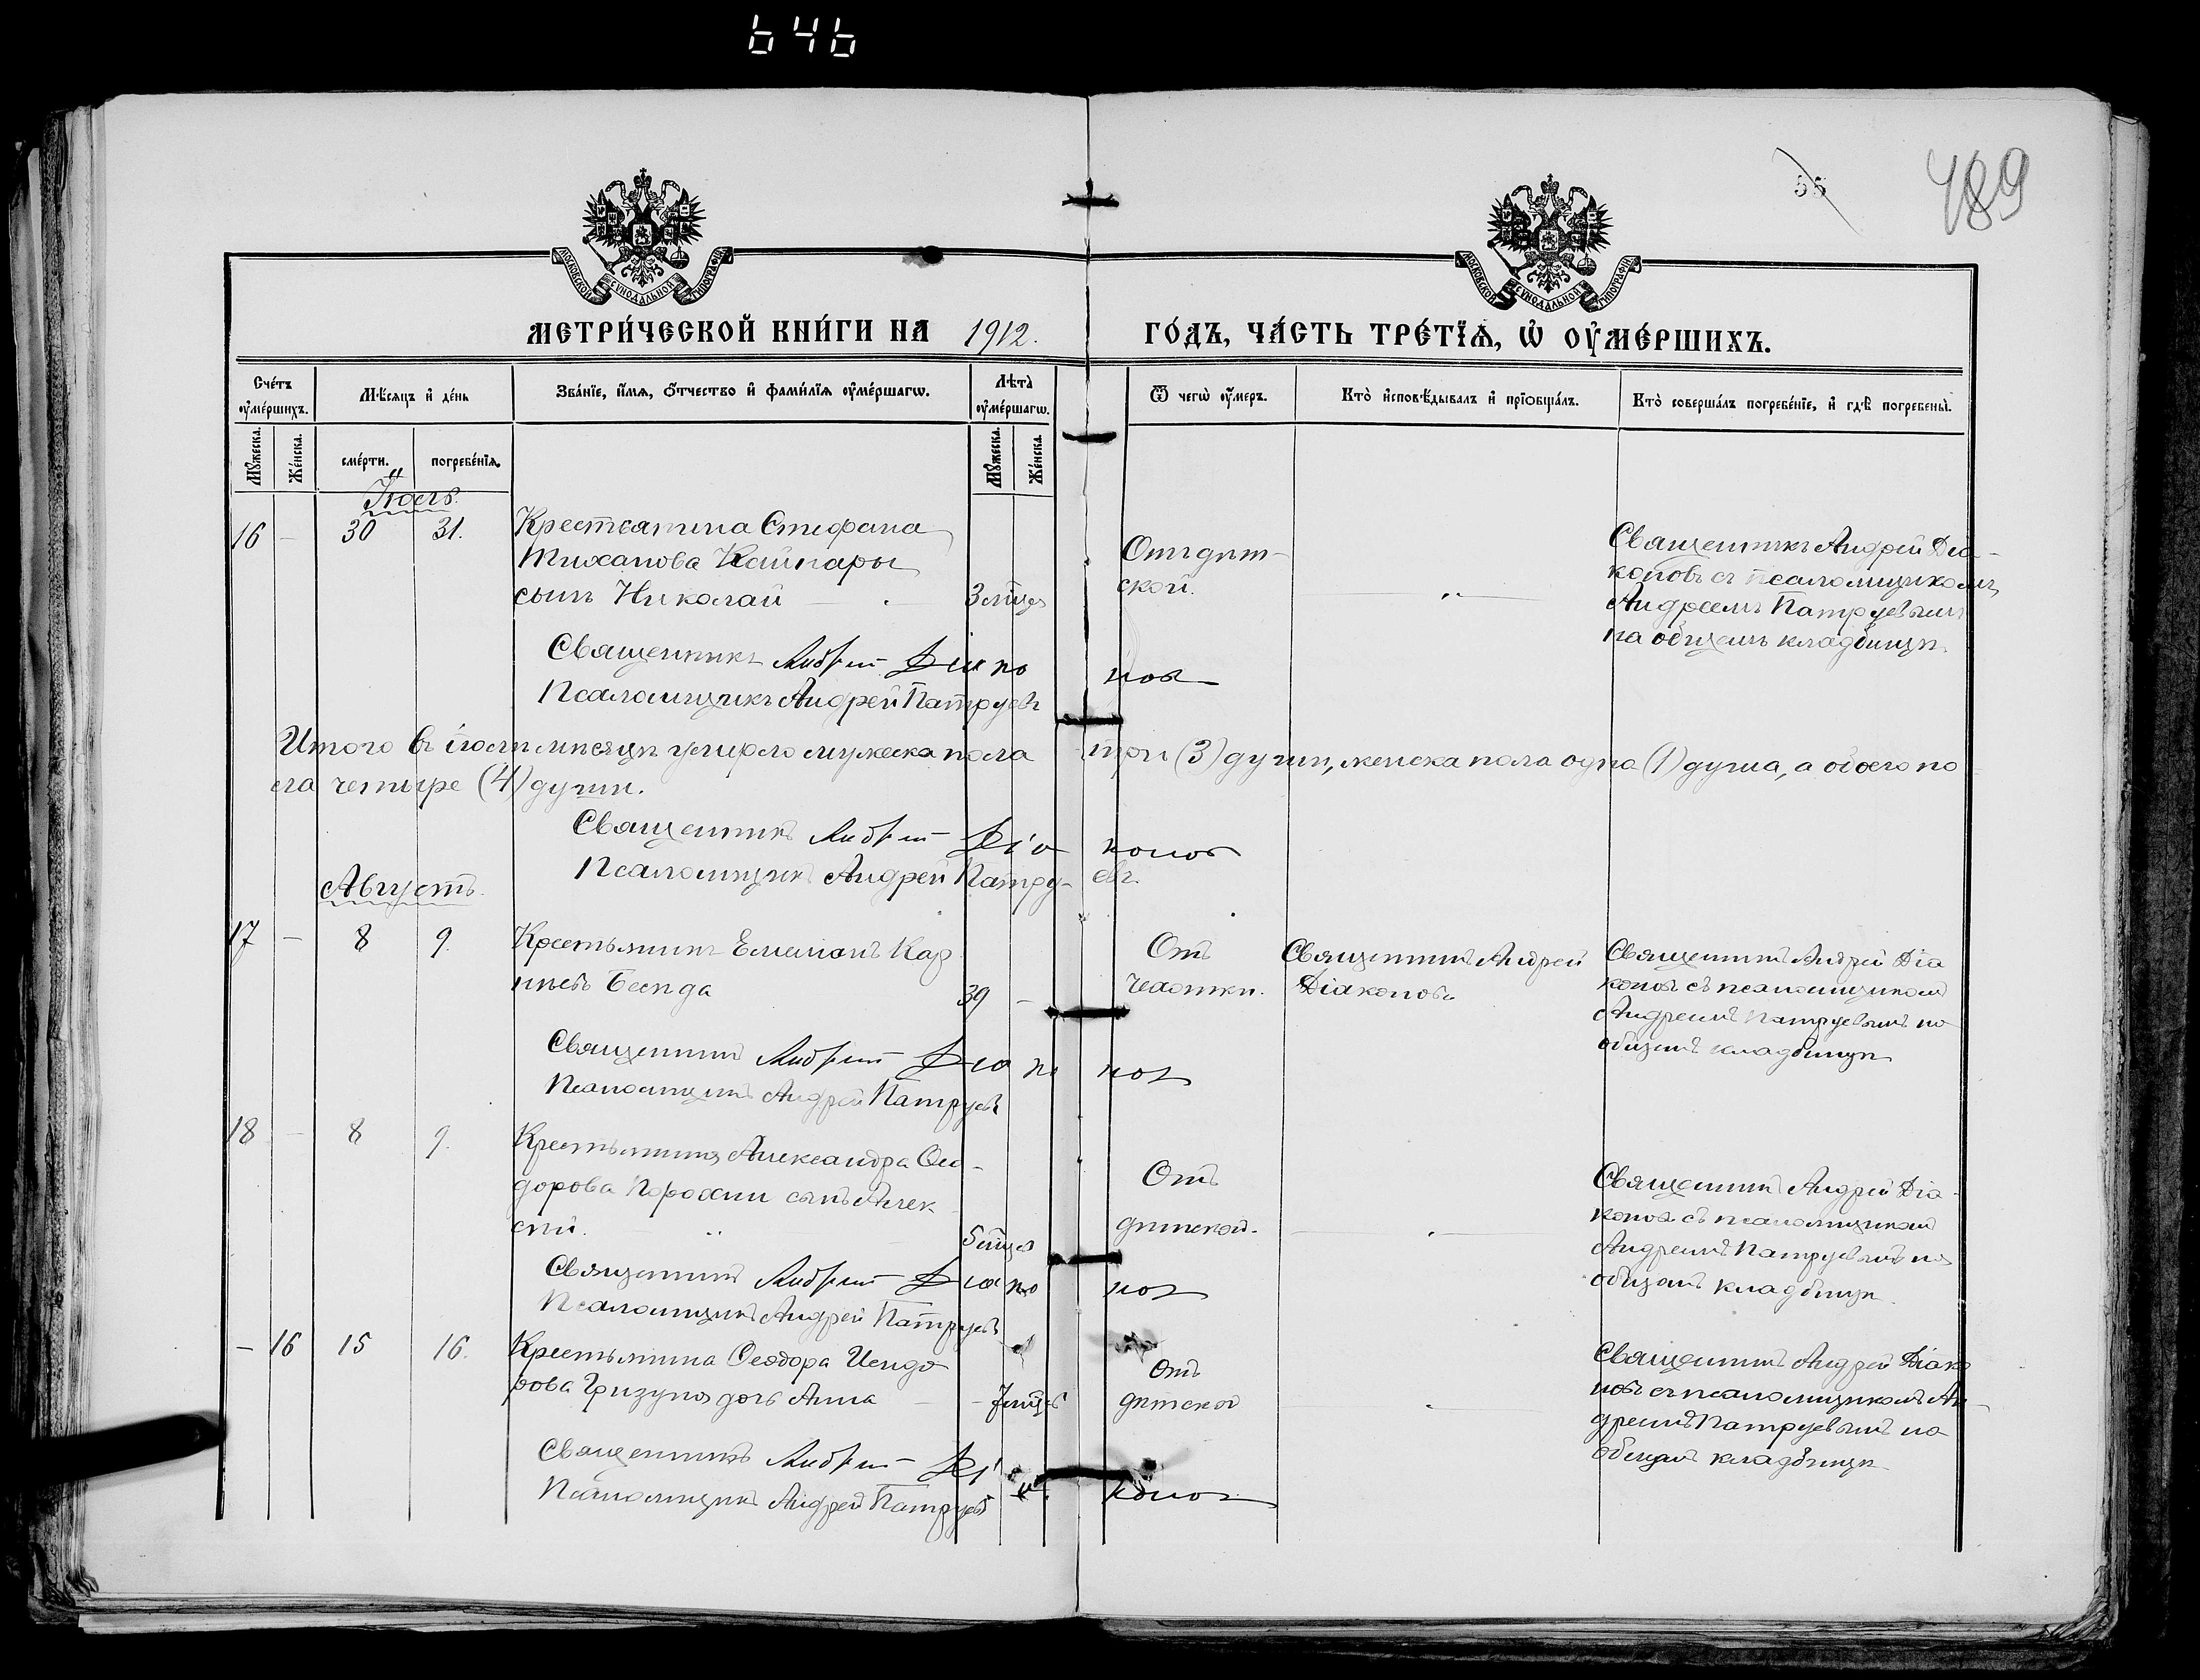 646
55
489
МОСКОВСКОЙ СѴНОДАЛЬНОЙ ТИПОГРАФІИ
МОСКОВСКОЙ СѴНОДАЛЬНОЙ ТИПОГРАФІИ
МЕТРИ́ЧЕСКОЙ КНИ́ГИ НА 1912. ГО́ДЪ, ЧА́СТЬ ТРЕ́ТЇѦ, Ѡ҆ ОУ҆МЕ́РШИХЪ.
Сче́тъ оу҆ме́ршихъ.
Мѣ́сѧцъ и҆ де́нь
Зва́нїе, и҆́мѧ, ѻ҆́тчество и҆ фами́лїѧ оу҆ме́ршагѡ.
Лѣта̀ оу҆ме́ршагѡ.
Ѿ чегѡ̀ оу҆́меръ.
Кто̀ и҆сповѣ́дывалъ и҆ прїѻбща́лъ.
Кто̀ соверша́лъ погребе́нїе, и҆ гдѣ̀ погребены̀.
Мꙋ́жеска.
Же́нска.
сме́рти.
погребе́нїѧ.
Мꙋ́жеска.
Же́нска.
Іюль.
16 - 30 31. Крестьянина Стефана
Тиханова Кайнары
сынъ Николай 3 мѣц.
Отъ дѣт-
ской.
Священникъ Андрей Діа-
коновъ съ псаломщикомъ
Андреемъ Патруевымъ
на общемъ кладбищѣ.
Священникъ Андрей Діаконов
Псаломщикъ Андрей Патруевъ
Итого въ іюлѣ мѣсяцѣ умерло мужеска пола три (3) души, женска пола одна (1) душа, а обоего по
ла четыре (4) души.
Священникъ Андрей Діаконов
Псаломщикъ Андрей Патру-евъ.
Августъ.
17 - 8 9. Крестьянинъ Емеліанъ Кар
пѣевъ 39 -
Отъ
Чахотки.
Священникъ Андрей
Діаконовъ
Священникъ Андрей Діа
коновъ съ псаломщикомъ
Андреемъ Патруевымъ на
общемъ кладбищѣ
Священникъ Андрей Діаконов
Псаломщикъ Андрей Патруевъ
18 - 8 9. Крестьянина Александра Ѳео-
дорова сынъ Алек
сѣй. 5 мѣцев
Отъ
дѣтской.
Священникъ Андрей Діа-
коновъ съ псаломщикомъ
Андреемъ Патруевымъ на
общемъ кладбищѣ
Священникъ Андрей Діаконов
Псаломщикъ Андрей Патруевъ
- 16 15 16. Крестьянина Ѳеодора Исидо
рова Гризуна дочь Анна - 7 мѣц-в
Отъ
дѣтской
Священникъ Андрей Діако
новъ съ псаломщикомъ Ан-
дреемъ Патруевымъ на
общемъ кладбищѣ
Священникъ Андрей Діаконов
Псаломщикъ Андрей Патруевъ